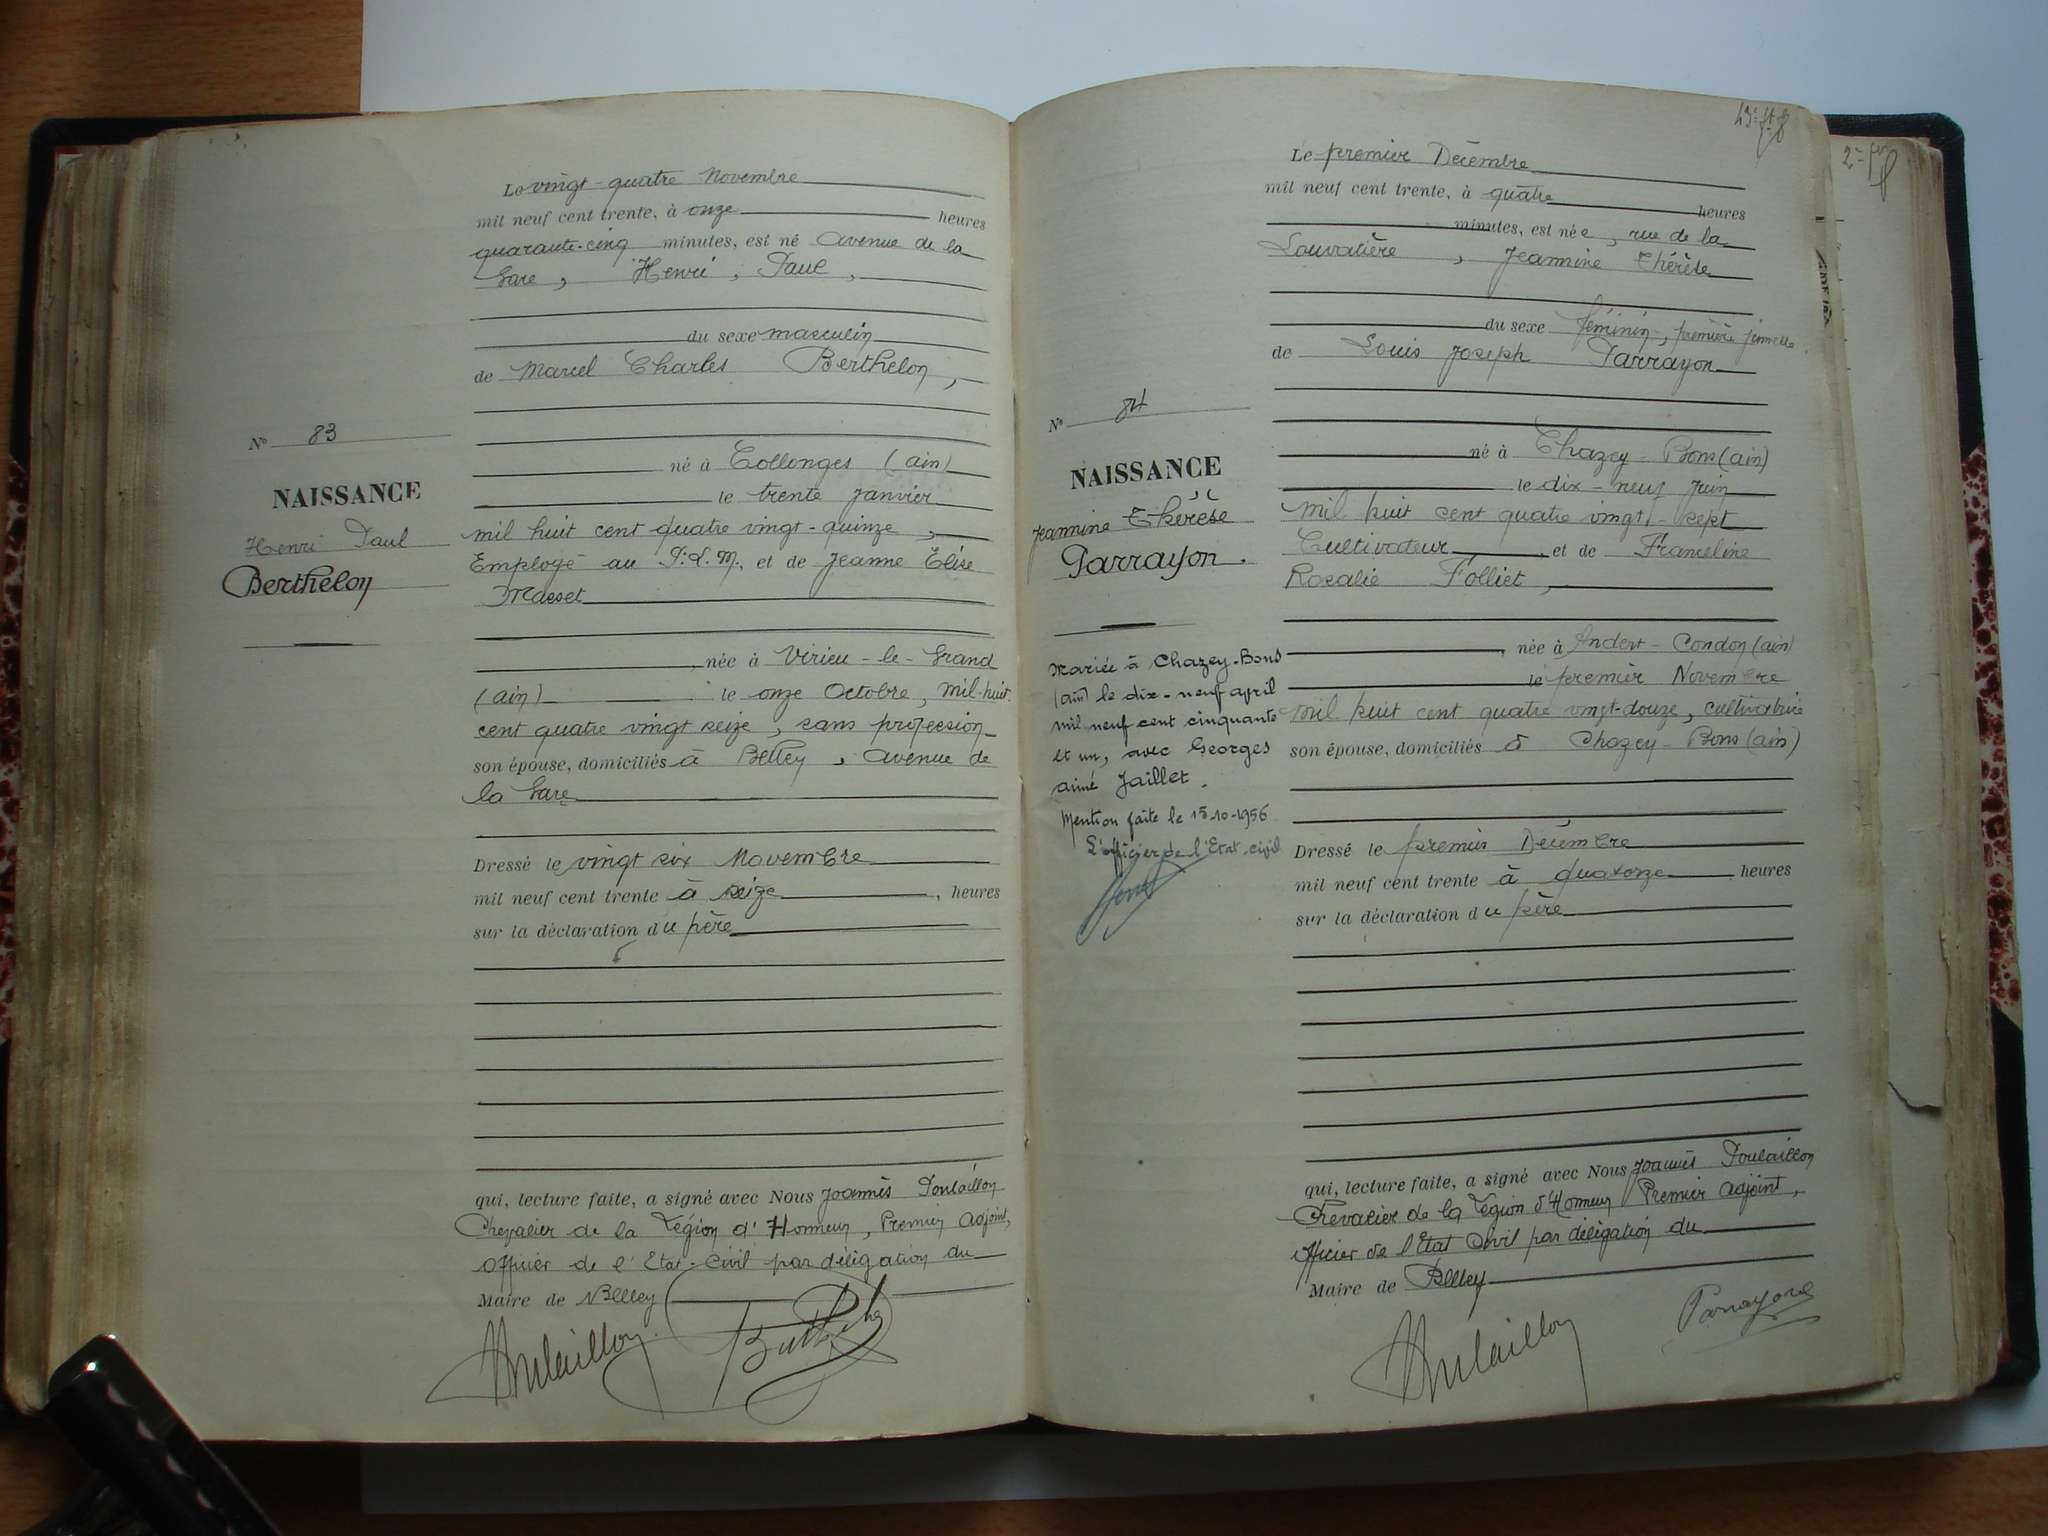 Le vingt-quatre Novembre
mil neuf cent trente, à onze heures
quarante-cinq minutes, est né Avenue de la
Gare, Henri, Paul,
du sexe masculin
de Marcel Charles Berthelon,
né à Collonges (ain)
le trente Janvier
mil huit cent quatre vingt-quinze,
Employé au P.L.M, et de Jeanne Elise
Masset
née à Virieu-le-Grand
(ain) le onze Octobre, mil-huit
cent quatre vingt seize, sans profession
son épouse, domiciliés à Belley, avenue de
la Gare
Dressé le vingt six Novembre
mil neuf cent trente à seize, heures
sur la déclaration du père
qui, lecture faite, a signé avec Nous Joannès Poulaillon
Chevalier de la Légion d'Honneur, Premier Adjoint,
officier de l'Etat-Civil par délégation du
Maire de Belley
N° 83
NAISSANCE
Henri Paul
Berthelon
Le premier Décembre
mil neuf cent trente, à quatre heures
minutes, est née, rue de la
Louvatière, Jeannine Thérèse
du sexe féminin, première jumelle
de Louis Joseph Parrayon
né à Chazey-Bons (ain)
le dix-neuf Juin
mil huit cent quatre vingt-sept
Cultivateur et de Franceline
Rosalie Folliet,
née à Andert-Condon (ain)
le premier Novembre
mil huit cent quatre vingt-douze, cultivatrice
son épouse, domiciliés à Chazey-Bons (ain)
Dressé le premier Décembre
mil neuf cent trente à quatorze heures
sur la déclaration du père
qui, lecture faite, a signé avec Nous Joannès Poulaillon
Chevalier de la Légion d'Honneur Premier Adjoint,
officier de l'Etat Civil par délégation du
Maire de Belley
Parrayon
N° 84
NAISSANCE
Jeannine Thérèse
Parrayon.
Mariée à Chazey-Bons
(ain) le dix-neuf april
mil neuf cent cinquante
et un, avec Georges
aimé Jaillet.
Mention faite le 15-10-1956
L'officier de l'Etat-civil